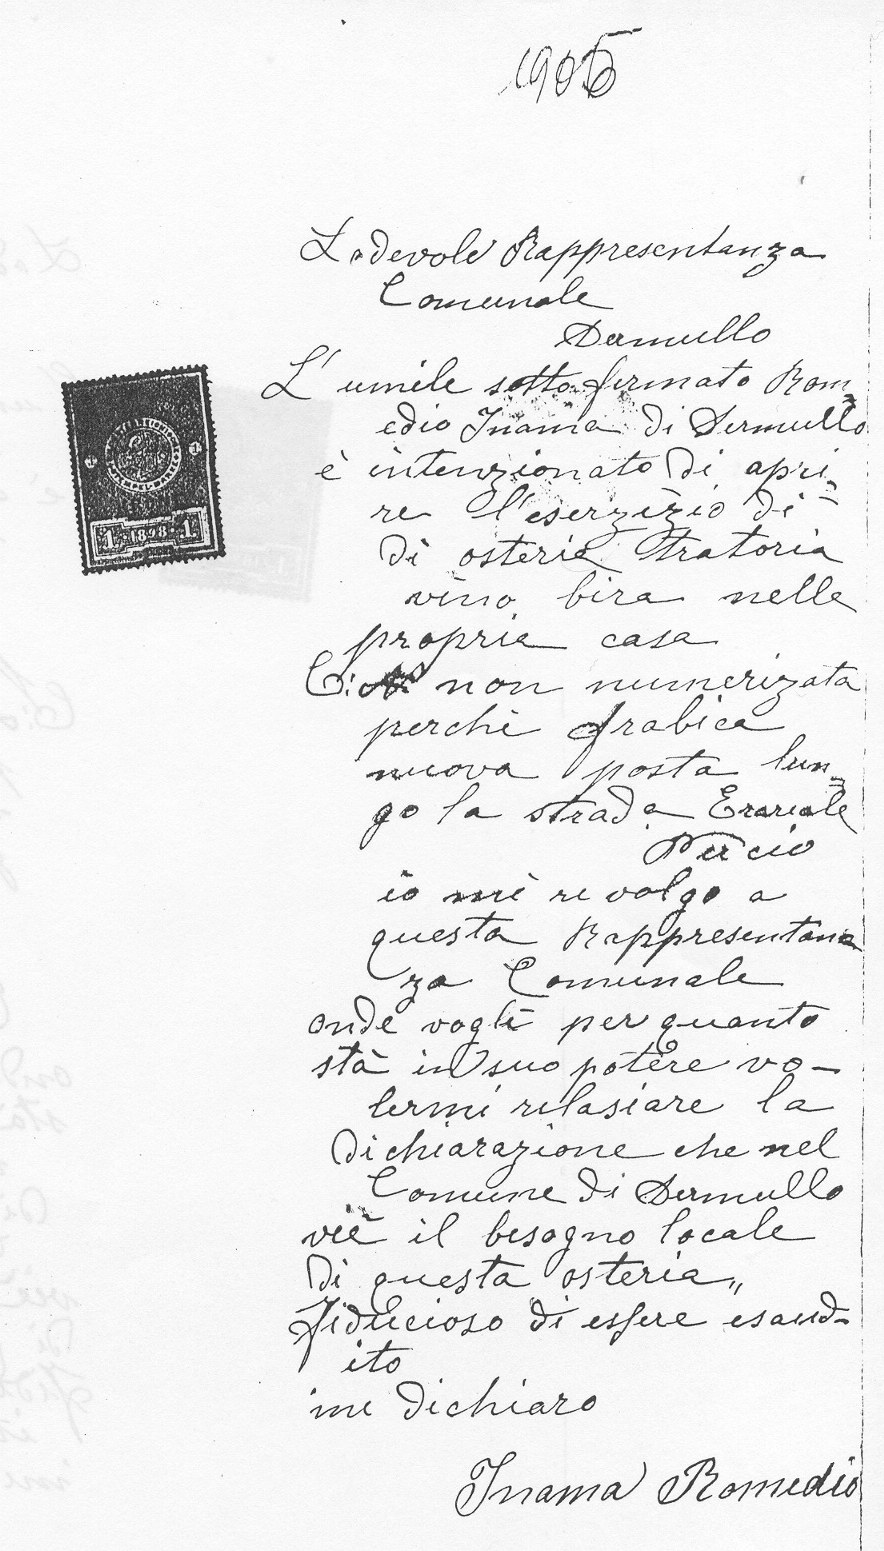 1905
Lodevole Rappresentanza
Comunale
Dermullo
L'umile sottofirmato Rom=
edio Inama di Dermullo
è intenzionato di apri=
re l'eserzizio di
di osteria tratoria
vino bira nella
propria casa
C: N° non numerizata
perchè frabica
nuova posta lun=
go la strada Erariale
Perciò
io mi rivolgo a
questa Rappresentan
za Comunale
onde vogli per quanto
stà in suo potere vo-
lermi rilasiare la
dichiarazione che nel
Comune di Dermullo
viè il besogno locale
di questa osteria„
Fiducioso di essere esaud-
ito
mi dichiaro
Inama Romedio
1 1
1 1898 1